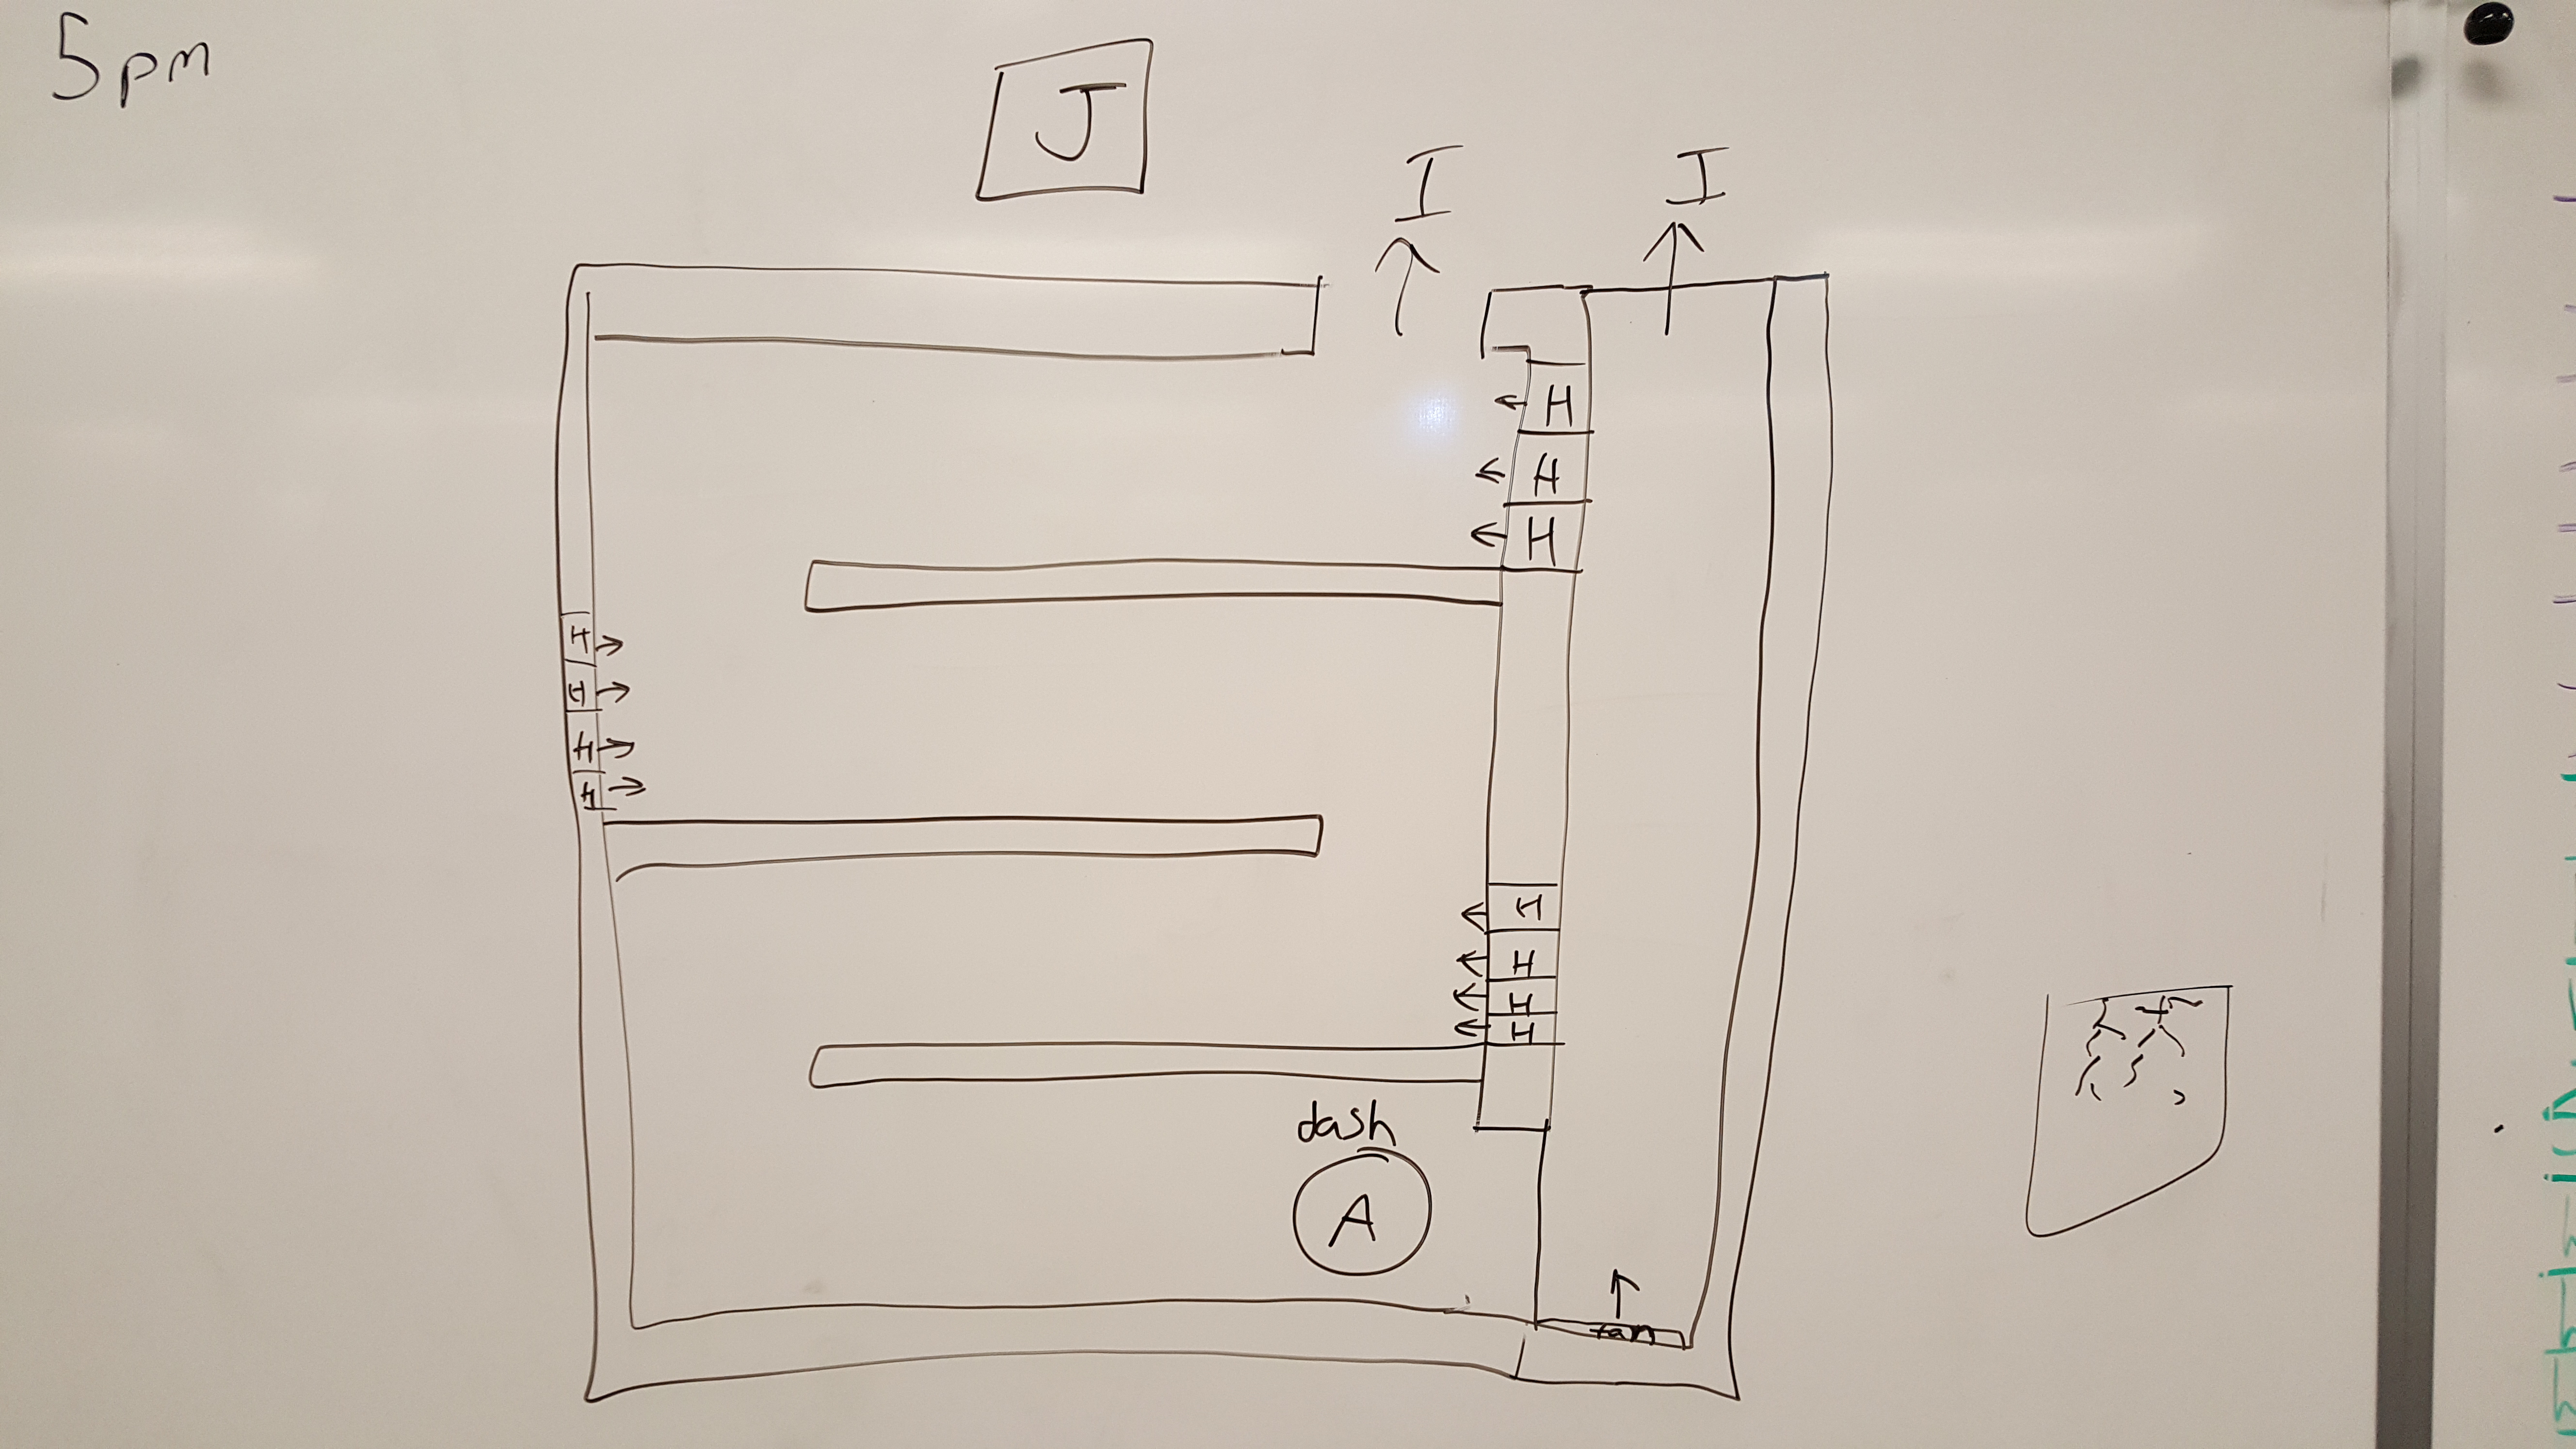 5pm
J
I I
H
H
H
H
H
H
H
H
H
H
H
dash
A
fan